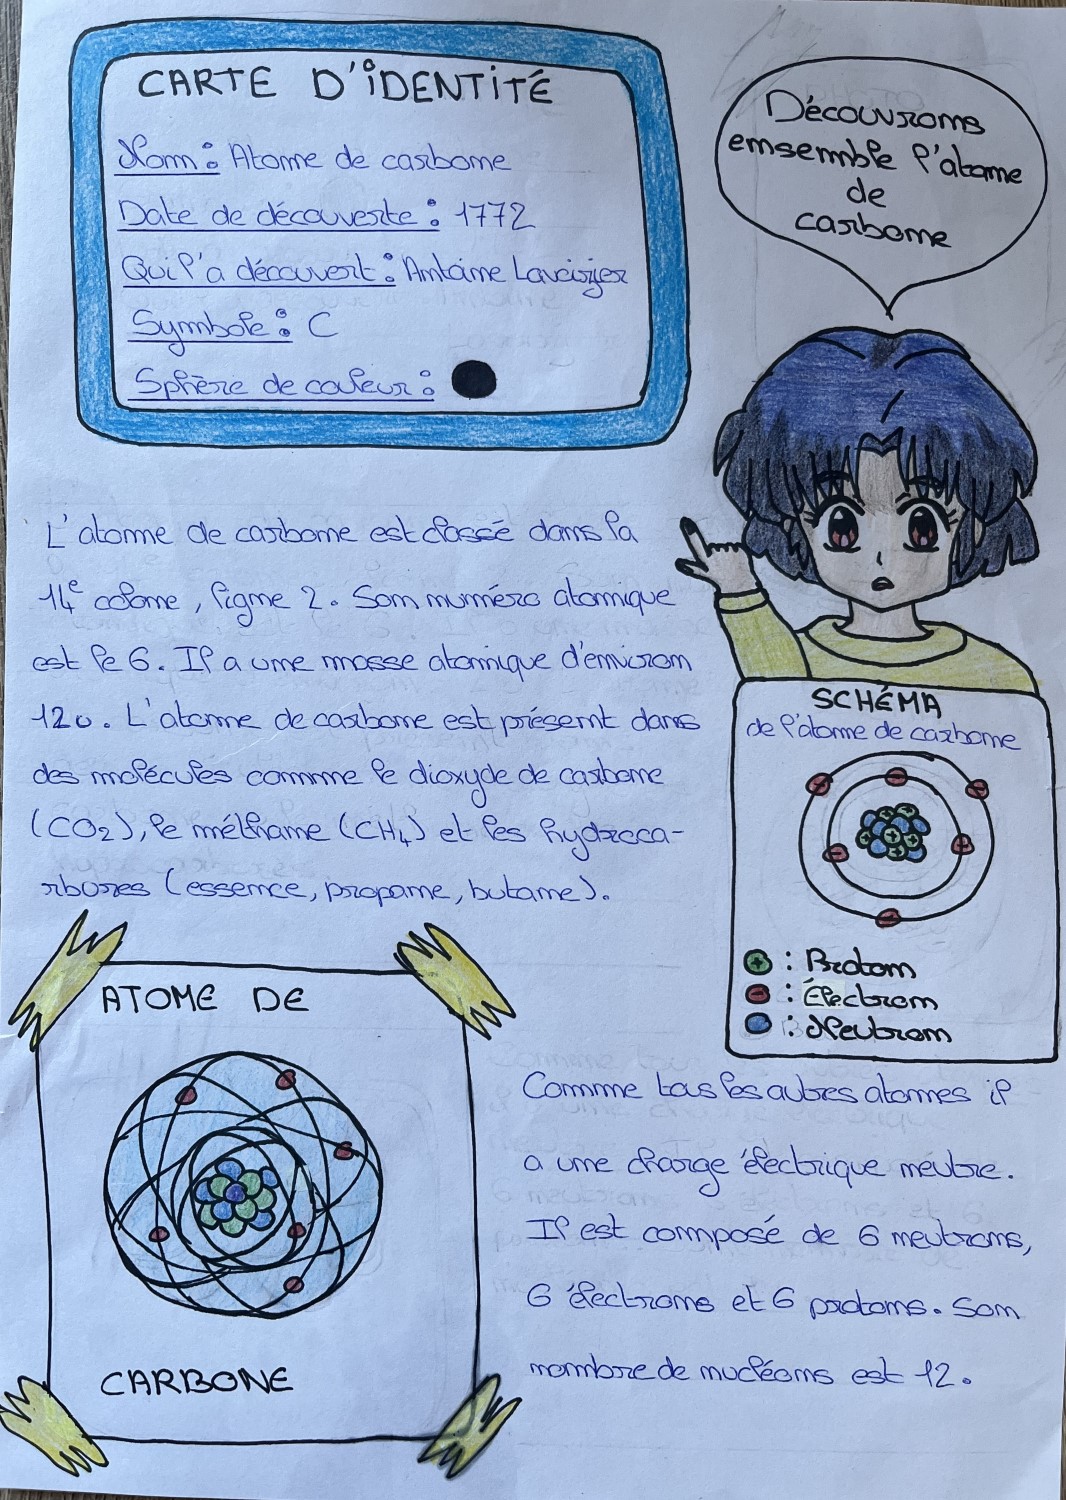 CARTE D'IDENTITÉ
Nom : Atome de carbone
Date de découverte : 1772
Qui l'a découvert : Antoine Lavoisier
Symbole : C
Sphère de couleur :
Découvrons
ensemble l'atome
de
carbone
L'atome de carbone est classé dans la
14e colone, ligne 2. Son numéro atomique
est le 6. Il a une masse atomique d'environ
12u. L'atome de carbone est présent dans
des molécules comme le dioxyde de carbone
(CO2), le méthane (CH4) et les hydroca-
rbures (essence, propane, butane).
SCHÉMA
de l'atome de carbone
+ : Proton
- : Électron
: Neutron
ATOME DE
CARBONE
Comme tous les autres atomes il
a une charge électrique neutre.
Il est composé de 6 neutrons,
6 électrons et 6 protons. Son
nombre de nucléons est 12.